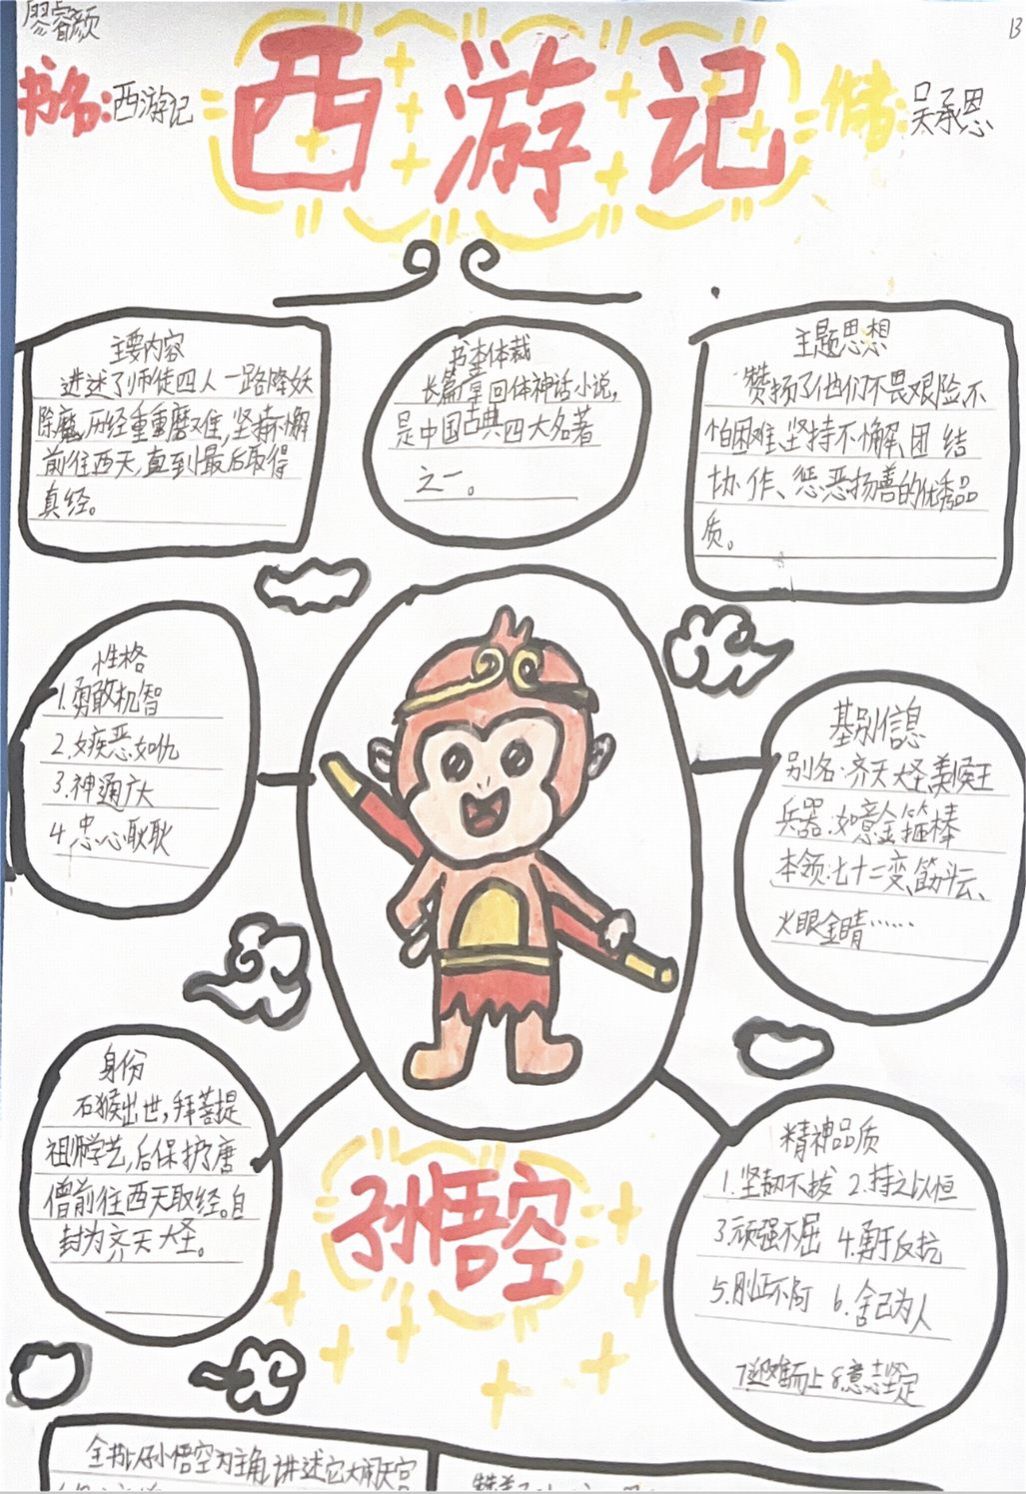 廖睿颜
13
书名:西游记
西游记
作者:吴承恩
主要内容
讲述了师徒四人一路降妖
除魔,历经重重磨难,坚持不懈
前往西天,直到最后取得
真经。
书本体裁
长篇章回体神话小说,
是中国古典四大名著
之一。
主题思想
赞扬了他们不畏艰险,不
怕困难,坚持不懈,团结
协作、惩恶扬善的优秀品
质。
性格
1.勇敢机智
2.嫉恶如仇
3.神通广大
4.忠心耿耿
基别信息
别名:齐天大圣,美猴王
兵器:如意金箍棒
本领:七十二变、筋斗云、
火眼金睛……
身份
石猴出世,拜菩提
祖师学艺,后保护唐
僧前往西天取经。自
封为齐天大圣。
孙悟空
精神品质
1.坚韧不拔 2.持之以恒
3.顽强不屈 4.勇于反抗
5.刚正不阿 6.舍己为人
7.迎难而上 8.意志坚定
全书以孙悟空为主角,讲述它大闹天宫